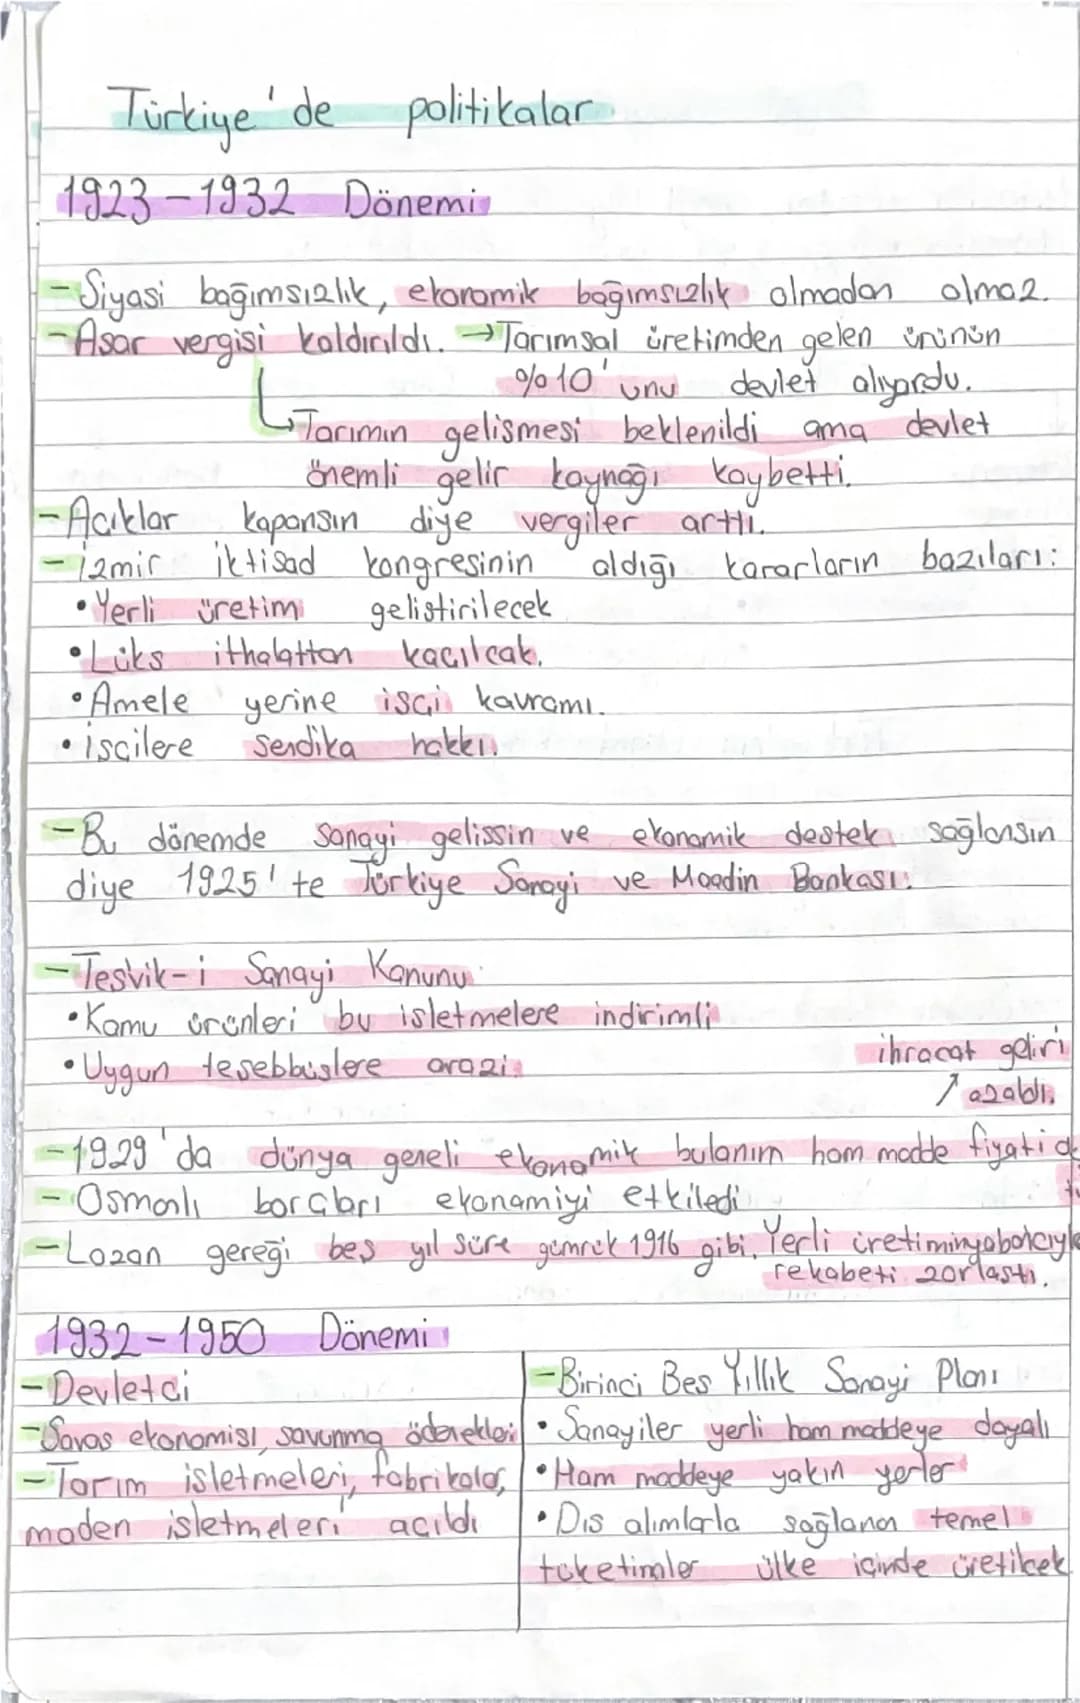 Türkiye'de politikalar
1923-1932 Dönemi
-Siyasi bağımsızlık, ekonomik bağımsızlık olmadan olmaz.
-Aşar vergisi kaldırıldı. →Tarımsal üretimden gelen ürünün
%10'unu devlet alıyordu.
↳Tarımın gelişmesi beklenildi ama devlet
önemli gelir kaynağı kaybetti.
-Açıklar kapansın diye vergiler arttı.
-İzmir iktisad kongresinin aldığı kararların bazıları:
•Yerli üretim geliştirilecek
•Lüks ithalattan kaçılcak.
•Amele yerine işçi kavramı.
•işçilere sendika hakkı.
-Bu dönemde sanayi gelissin ve ekonomik destek sağlansın
diye 1925'te Türkiye Sanayi ve Maadin Bankası.
-Teşvik-i Sanayi Kanunu
•Kamu ürünleri bu işletmelere indirimli
•Uygun teşebbüslere arazi
ihracat geliri
↗ azaldı.
-1929'da dünya geneli ekonomik bulanım ham madde fiyati
-Osmanlı borçları ekonamiyi etkiledi
-Lozan gereği beş yıl süre gümrük 1916 gibi. Yerli üretimin
rekabeti zorlaştı.
1932-1950 Dönemi
-Devletçi
-Savaş ekonomisi, savunma ödenekleri
-Tarım işletmeleri, fabrikalar,
maden işletmeleri açıldı
-Birinci Beş Yıllık Sanayi Planı
•Sanayiler yerli ham maddeye dayalı
•Ham maddeye yakın yerler
•Dış alımlarla sağlanan temel
tüketimler ülke içinde üretilcek